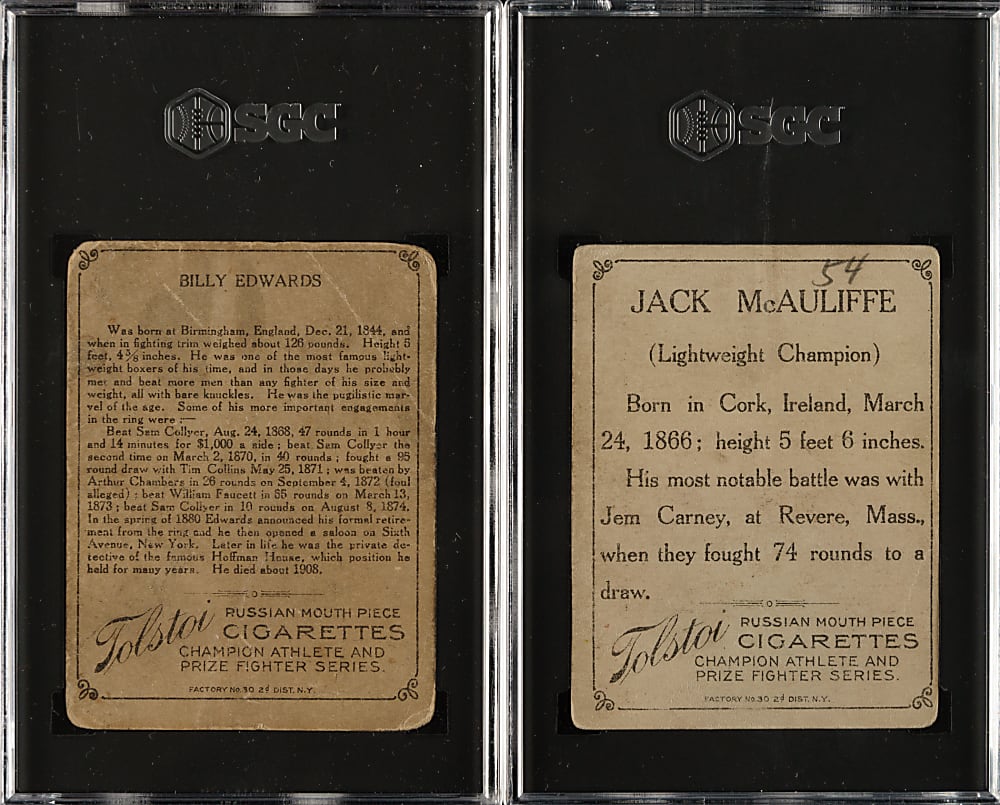 SGC
BILLY EDWARDS
Was born at Birmingham, England, Dec. 21, 1844, and
when in fighting trim weighed about 126 pounds. Height 5
feet, 4⅜ inches. He was one of the most famous light-
weight boxers of his time, and in those days he probably
met and beat more men than any fighter of his size and
weight, all with bare knuckles. He was the pugilistic mar-
vel of the age. Some of his more important engagements
in the ring were :—
Beat Sam Collyer, Aug. 24, 1868, 47 rounds in 1 hour
and 14 minutes for $1,000 a side ; beat Sam Collyer the
second time on March 2, 1870, in 40 rounds ; fought a 95
round draw with Tim Collins May 25, 1871 ; was beaten by
Arthur Chambers in 26 rounds on September 4, 1872 (foul
alleged) ; beat William Faucett in 65 rounds on March 13,
1873 ; beat Sam Collyer in 10 rounds on August 8, 1874.
In the spring of 1880 Edwards announced his formal retire-
ment from the ring and he then opened a saloon on Sixth
Avenue, New York. Later in life he was the private de-
tective of the famous Hoffman House, which position he
held for many years. He died about 1908.
Tolstoi RUSSIAN MOUTH PIECE
CIGARETTES
CHAMPION ATHLETE AND
PRIZE FIGHTER SERIES.
FACTORY No. 30 2d DIST. N.Y.
SGC
54
JACK McAULIFFE
(Lightweight Champion)
Born in Cork, Ireland, March
24, 1866; height 5 feet 6 inches.
His most notable battle was with
Jem Carney, at Revere, Mass.,
when they fought 74 rounds to a
draw.
Tolstoi RUSSIAN MOUTH PIECE
CIGARETTES
CHAMPION ATHLETE AND
PRIZE FIGHTER SERIES.
FACTORY No. 30 2d DIST. N.Y.